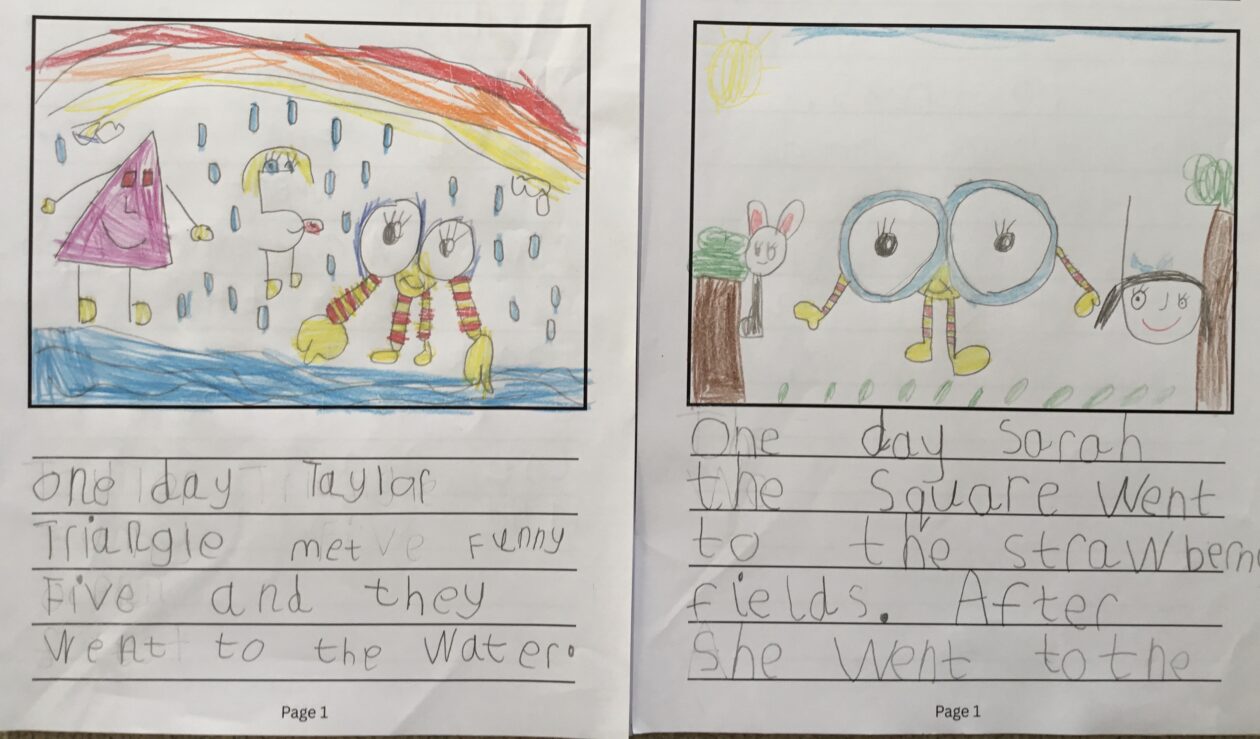 one day Taylor
Triangle met Funny
Five and they
Went to the Water.
Page 1
One day Sarah
the Square Went
to the strawberr
fields. After
She Went to the
Page 1